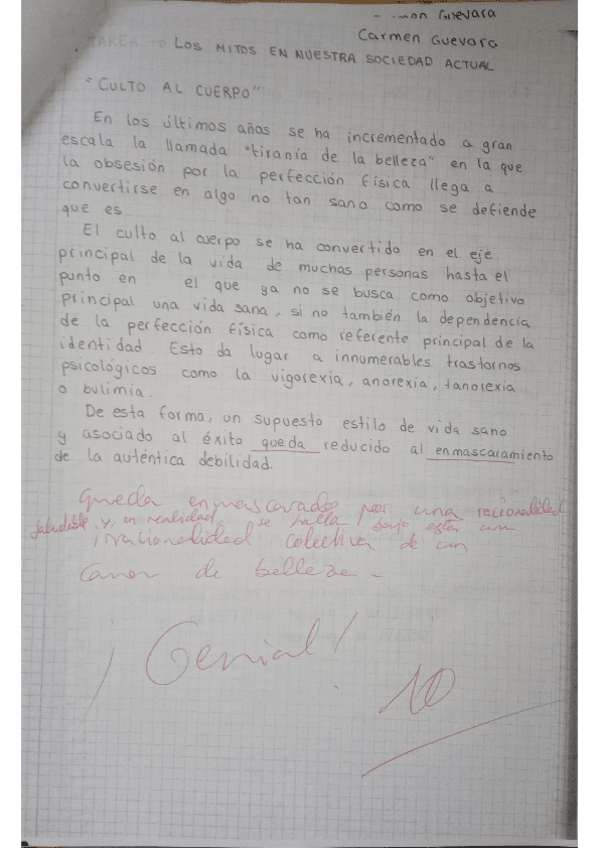 Guevara
Carmen Guevara
TAREA → LOS MITOS EN NUESTRA SOCIEDAD ACTUAL
"CULTO AL CUERPO"
En los últimos años se ha incrementado a gran
escala la llamada "tiranía de la belleza" en la que
la obsesión por la perfección física llega a
convertirse en algo no tan sano como se defiende
que es.
El culto al cuerpo se ha convertido en el eje
principal de la vida de muchas personas hasta el
punto en el que ya no se busca como objetivo
principal una vida sana, si no también la dependencia
de la perfección física como referente principal de la
identidad. Esto da lugar a innumerables trastornos
psicológicos como la vigorexia, anorexia, tanorexia
o bulimia.
De esta forma, un supuesto estilo de vida sano
y asociado al éxito queda reducido al enmascaramiento
de la auténtica debilidad.
queda enmascarado por una racionalidad
saludable y, en realidad, se halla bajo esta una
irracionalidad colectiva de un
canon de belleza.
¡Genial!
10